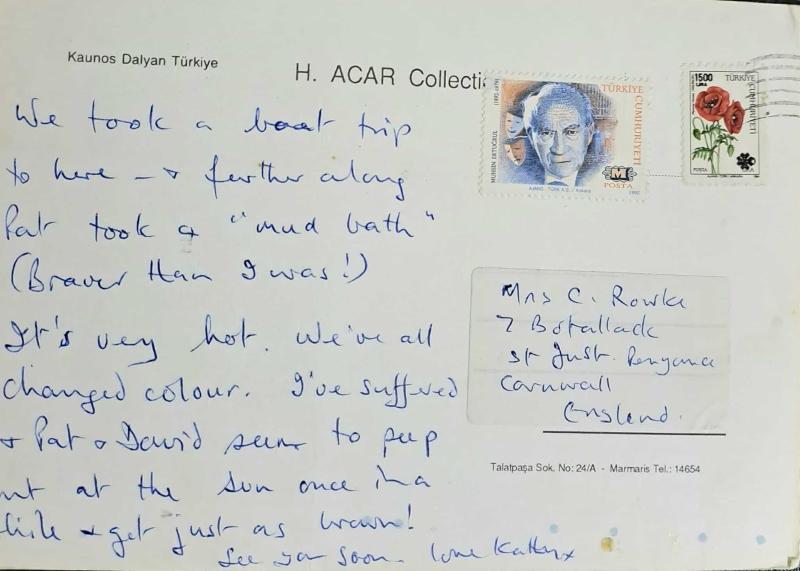 Kaunos Dalyan Türkiye
H. ACAR Collecti
We took a boat trip
to here – & further along
Pat took a "mud bath"
(Braver than I was!)
It's very hot. We've all
changed colour. I've suffered
& Pat & David seem to peep
out at the sun once in a
while & get just as brown!
See you soon. love Kathy x
(1892-1979)
MUHSİN ERTUĞRUL
TÜRKİYE
CUMHURİYETİ
M
POSTA
AJANS - TÜRK A.Ş. / Ankara
1992
1500
LİRA
TÜRKİYE
CUMHURİYETİ
POSTA
Mrs C. Rowke
7 Botallack
St Just. Penzance
Cornwall
England.
Talatpaşa Sok. No: 24/A - Marmaris Tel.: 14654